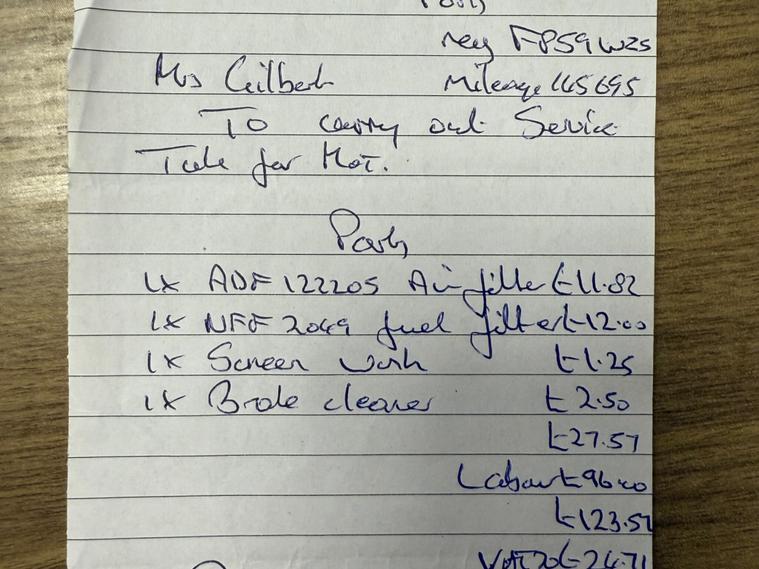 reg FP59WZS
Mrs Gilbert Mileage 165695
To carry out Service
Take for Mot.
Parts
1x ADF122205 Air filter £11.82
1x NFF2049 fuel filter £12.00
1x Screen wash £1.25
1x Brake cleaner £2.50
£27.57
Labour £96.00
£123.57
VAT 20 £24.71